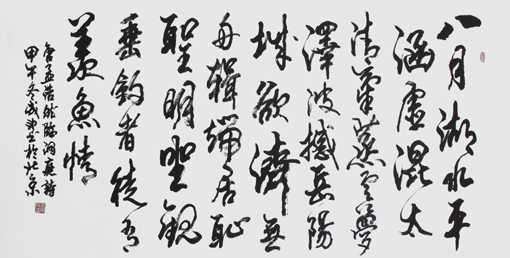 八月湖水平
涵虛混太
清氣蒸雲夢
澤波撼岳陽
城欲濟無
舟楫端居耻
聖明坐觀
垂釣者徒有
羨魚情
唐孟浩然臨洞庭詩
甲午冬於北京